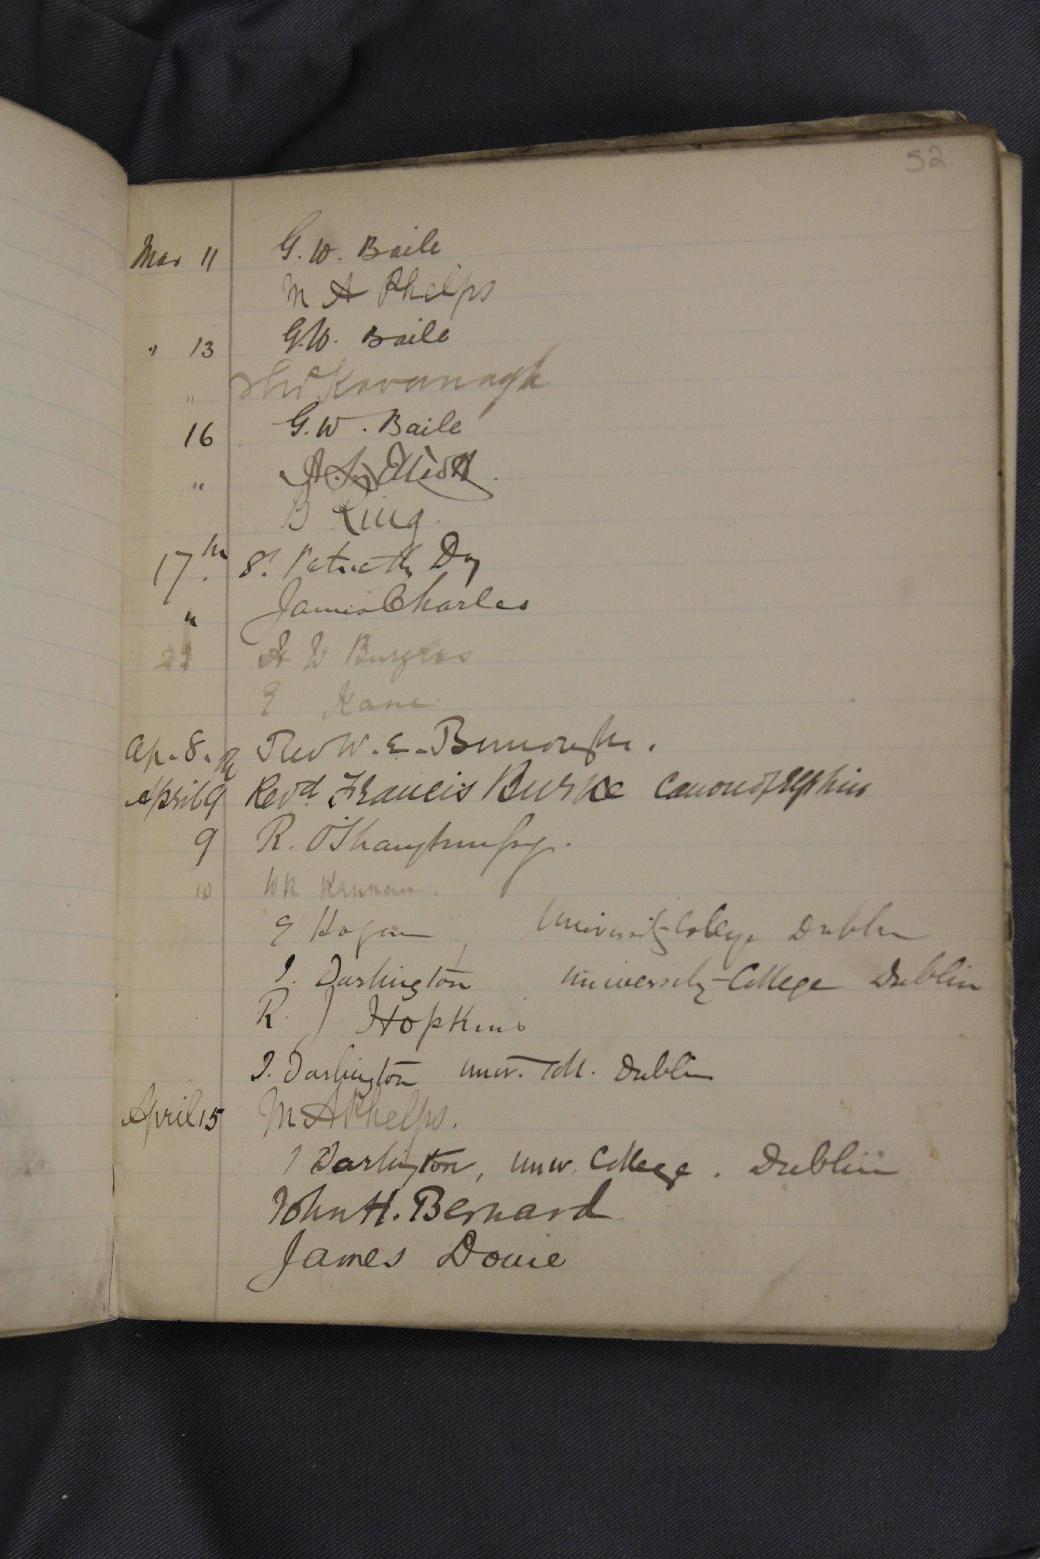 52
Mar 11 G. W. Baile
M A Phelps
" 13 G.W. Baile
" Kavanagh
16 G. W. Baile
" A. L. Elliott
B King
17th St. Patrick's Day
" James Charles
A W Burgess
E Kane
Ap. 8. Rev W. E. Burroughs.
April 9th Revd. Francis Burke Canon of Elphin
9 R. O'Shaughnessy.
10 WR
E Hogan, University College Dublin
J. Darlington University College Dublin
R. J Hopkins
J. Darlington Univ. Coll. Dublin
April 15 M A Phelps.
J Darlington, Univ. College. Dublin
John H. Bernard
James Dowie